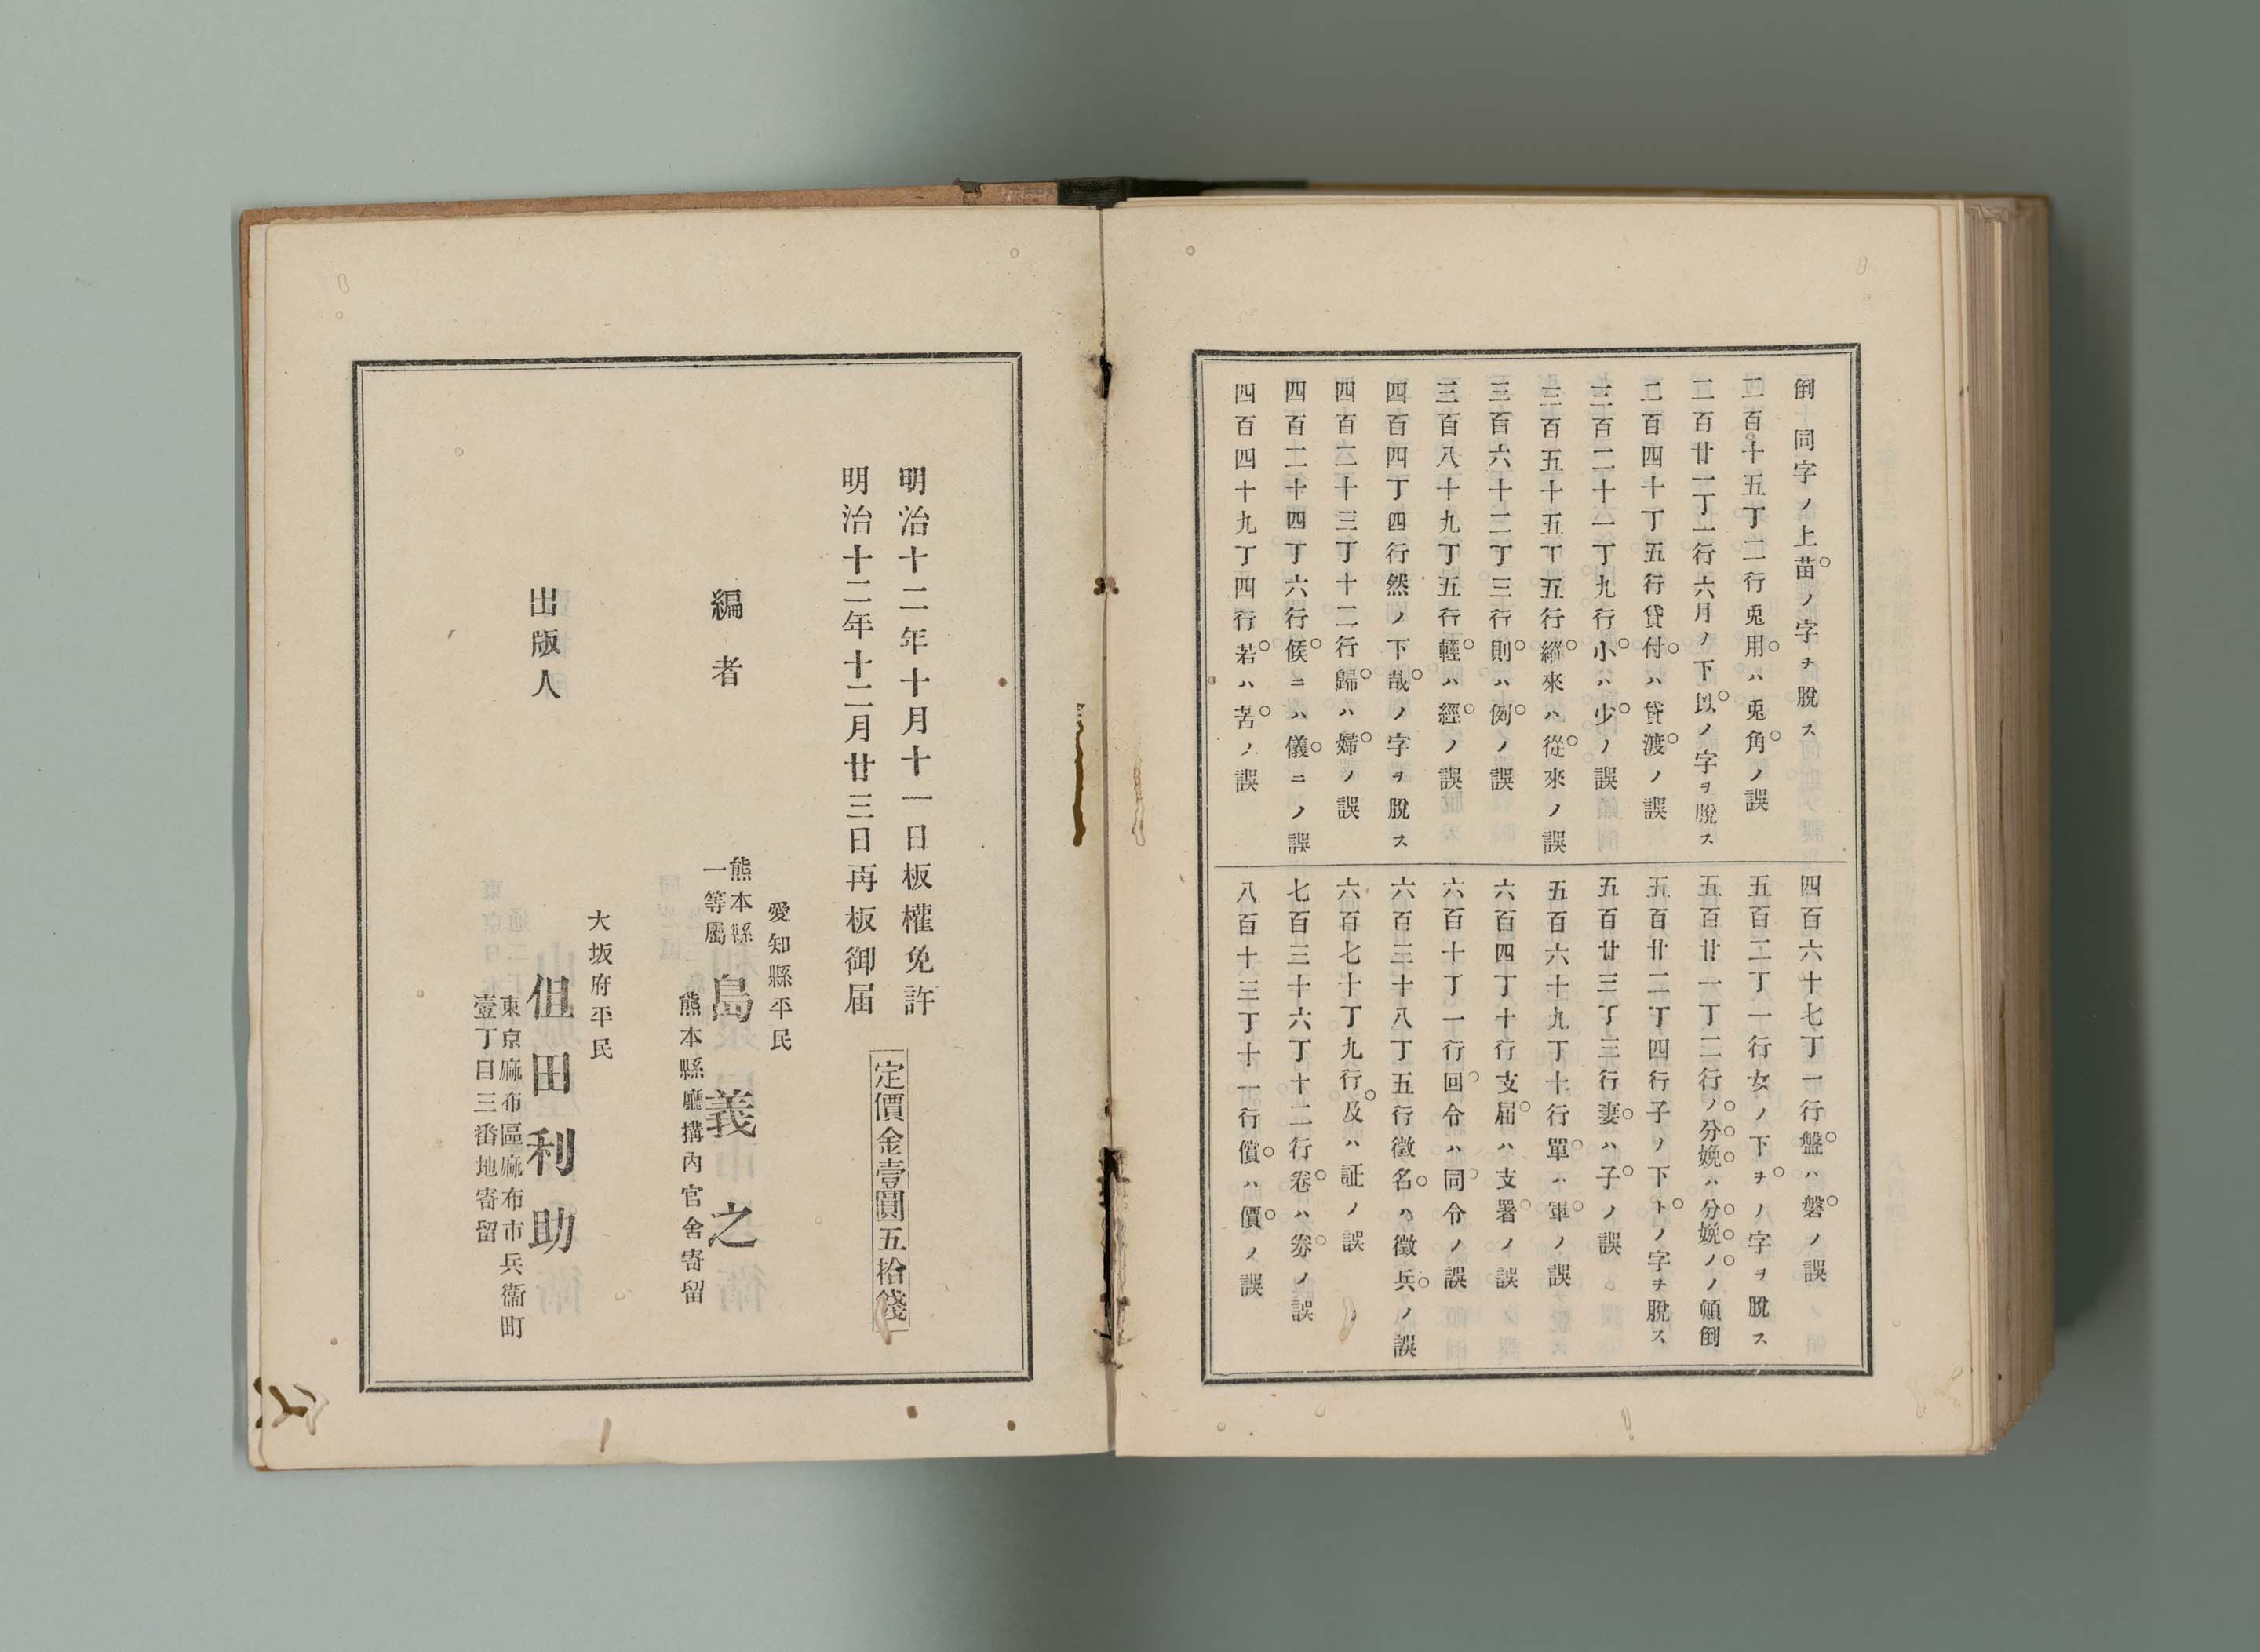 倒
同字ノ上苗ノ字ヲ脫ス
二百十五丁二行兎用ハ兎角ノ誤
二百廿一丁一行六月ノ下以ノ字ヲ脫ス
二百四十丁五行貸付ハ貸渡ノ誤
三百二十一丁九行小ハ少ノ誤
三百五十五丁五行縱來ハ從來ノ誤
三百六十二丁三行則ハ例ノ誤
三百八十九丁五行輕ハ經ノ誤
四百四丁四行然ノ下哉ノ字ヲ脫ス
四百二十三丁十二行歸ハ婦ノ誤
四百二十四丁六行候ニハ儀ニノ誤
四百四十九丁四行若ハ苦ノ誤
四百六十七丁一行盤ハ磐ノ誤
五百二丁一行女ノ下ヲノ字ヲ脫ス
五百廿一丁二行ノ分娩ハ分娩ノノ顚倒
五百廿二丁四行子ノ下トノ字ヲ脫ス
五百廿三丁三行妻ハ子ノ誤
五百六十九丁十行單ハ軍ノ誤
六百四丁十行支届ハ支署ノ誤
六百十丁一行回令ハ同令ノ誤
六百三十八丁五行徵名ハ徵兵ノ誤
六百七十丁九行及ハ証ノ誤
七百三十六丁十二行卷ハ券ノ誤
八百十三丁十一行償ハ價ノ誤
明治十二年十月十一日板權免許
明治十二年十二月廿三日再板御届
定價金壹圓五拾錢
愛知縣平民
編者
熊本縣
一等屬
島義之
熊本縣廳搆內官舍寄留
大坂府平民
出版人
伹田利助
東京麻布區麻布市兵衞町
壹丁目三番地寄留